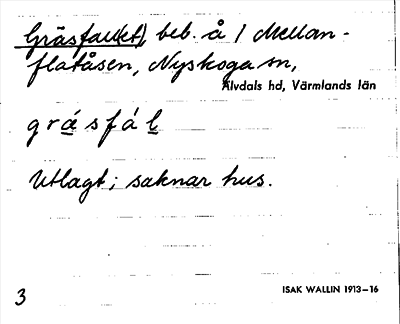 Gräsfallet), beb. å 1 Mellan-
flatåsen, Nyskoga sn,
Älvdals hd, Värmlands län
g r á s f á l
Utlagt; saknar hus.
3
ISAK WALLIN 1913–16